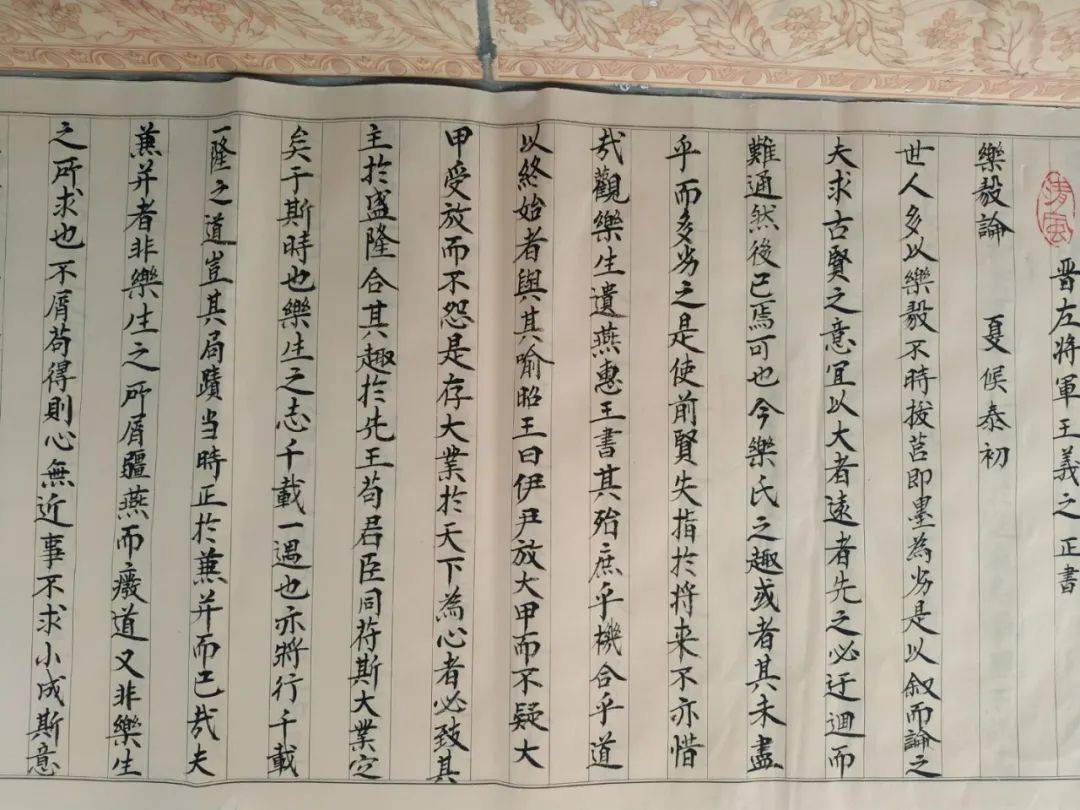 清風
晉左將軍王羲之正書
樂毅論 夏候泰初
世人多以樂毅不時拔莒即墨為劣是以叙而論之
夫求古賢之意宜以大者遠者先之必迂迴而
難通然後已焉可也今樂氏之趣或者其未盡
乎而多劣之是使前賢失指於将来不亦惜
哉觀樂生遺燕惠王書其殆庶乎機合乎道
以終始者與其喻昭王曰伊尹放大甲而不疑大
甲受放而不怨是存大業於天下為心者必致其
主於盛隆合其趣於先王苟君臣同苻斯大業定
矣于斯時也樂生之志千載一遇也亦將行千載
一隆之道豈其局蹟当時正於蒹并而已哉夫
蒹并者非樂生之所屑疆燕而癈道又非樂生
之所求也不屑苟得則心無近事不求小成斯意